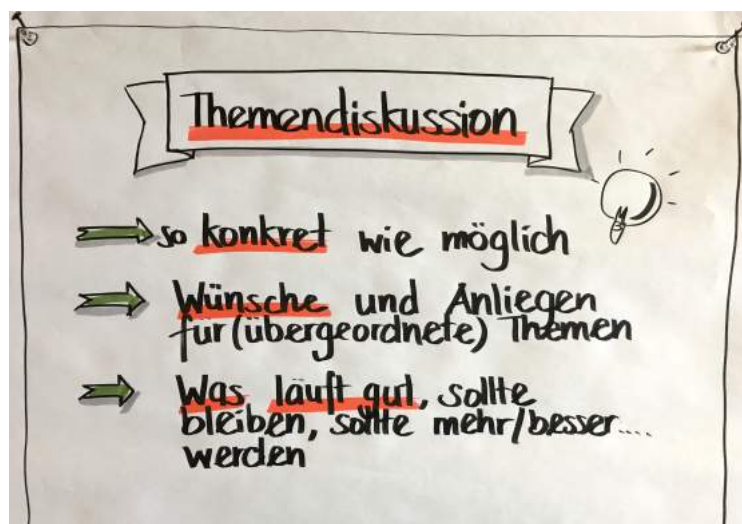 Themendiskussion
so konkret wie möglich
Wünsche und Anliegen
für (übergeordnete) Themen
Was läuft gut, sollte
bleiben, sollte mehr/besser....
werden